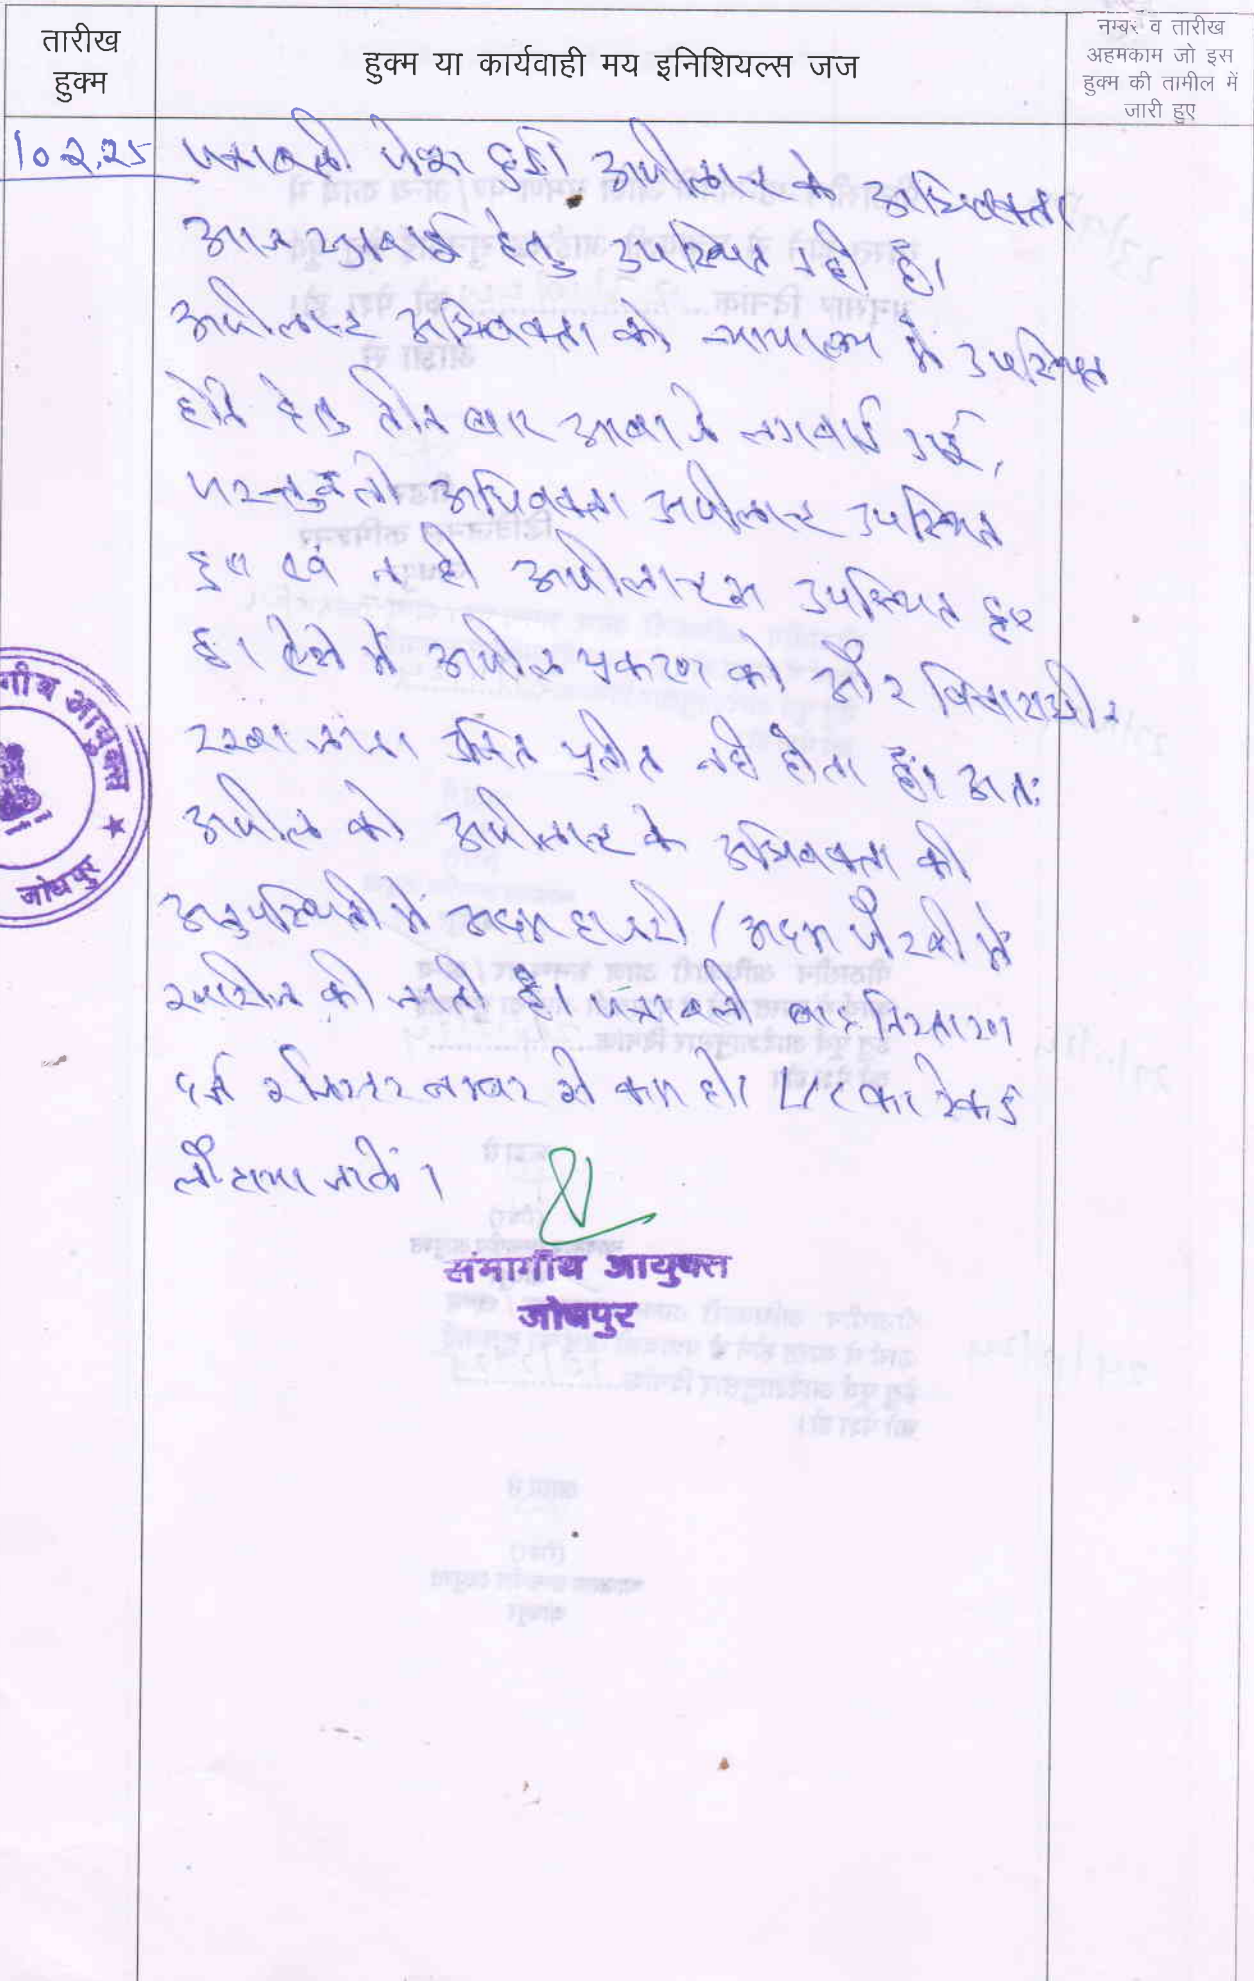 तारीख
हुक्म
हुक्म या कार्यवाही मय इनिशियल्स जज
नम्बर व तारीख
अहमकाम जो इस
हुक्म की तामील में
जारी हुए
10.2.25
पत्रावली पेश हुई। अपीलान्ट के अधिवक्ता
आज सुनवाई हेतु उपस्थित नही है।
अपीलान्ट अधिवक्ता को न्यायालय में उपस्थित
होने हेतु तीन बार आवाजे लगवाई गई,
परन्तु न तो अधिवक्ता अपीलान्ट उपस्थित
हुए एवं न ही अपीलान्ट्स उपस्थित हुए
है। ऐसे में अपील प्रकरण को और विचाराधीन
रखा जाना उचित प्रतीत नही होता है। अतः
अपील को अपीलान्ट के अधिवक्ता की
अनुपस्थिती में अदम हाजरी / अदम पैरवी में
खारीज की जाती है। पत्रावली बाद निस्तारण
दर्ज रजिस्टर नम्बर से कम हो। LCR का रेकर्ड
लौटाया जावें।
संभागीय आयुक्त
जोधपुर
गीय आयुक्त ★
जोधपुर